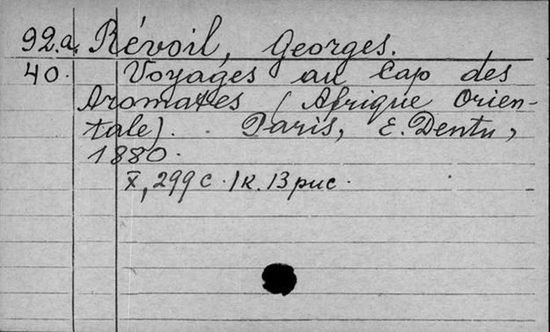 92.a. Révoil, Georges.
40. Voyages au Cap des
Aromates (Afrique Orien-
tale). Paris, E. Dentu,
1880.
X, 299 с. 1 к. 13 рис.